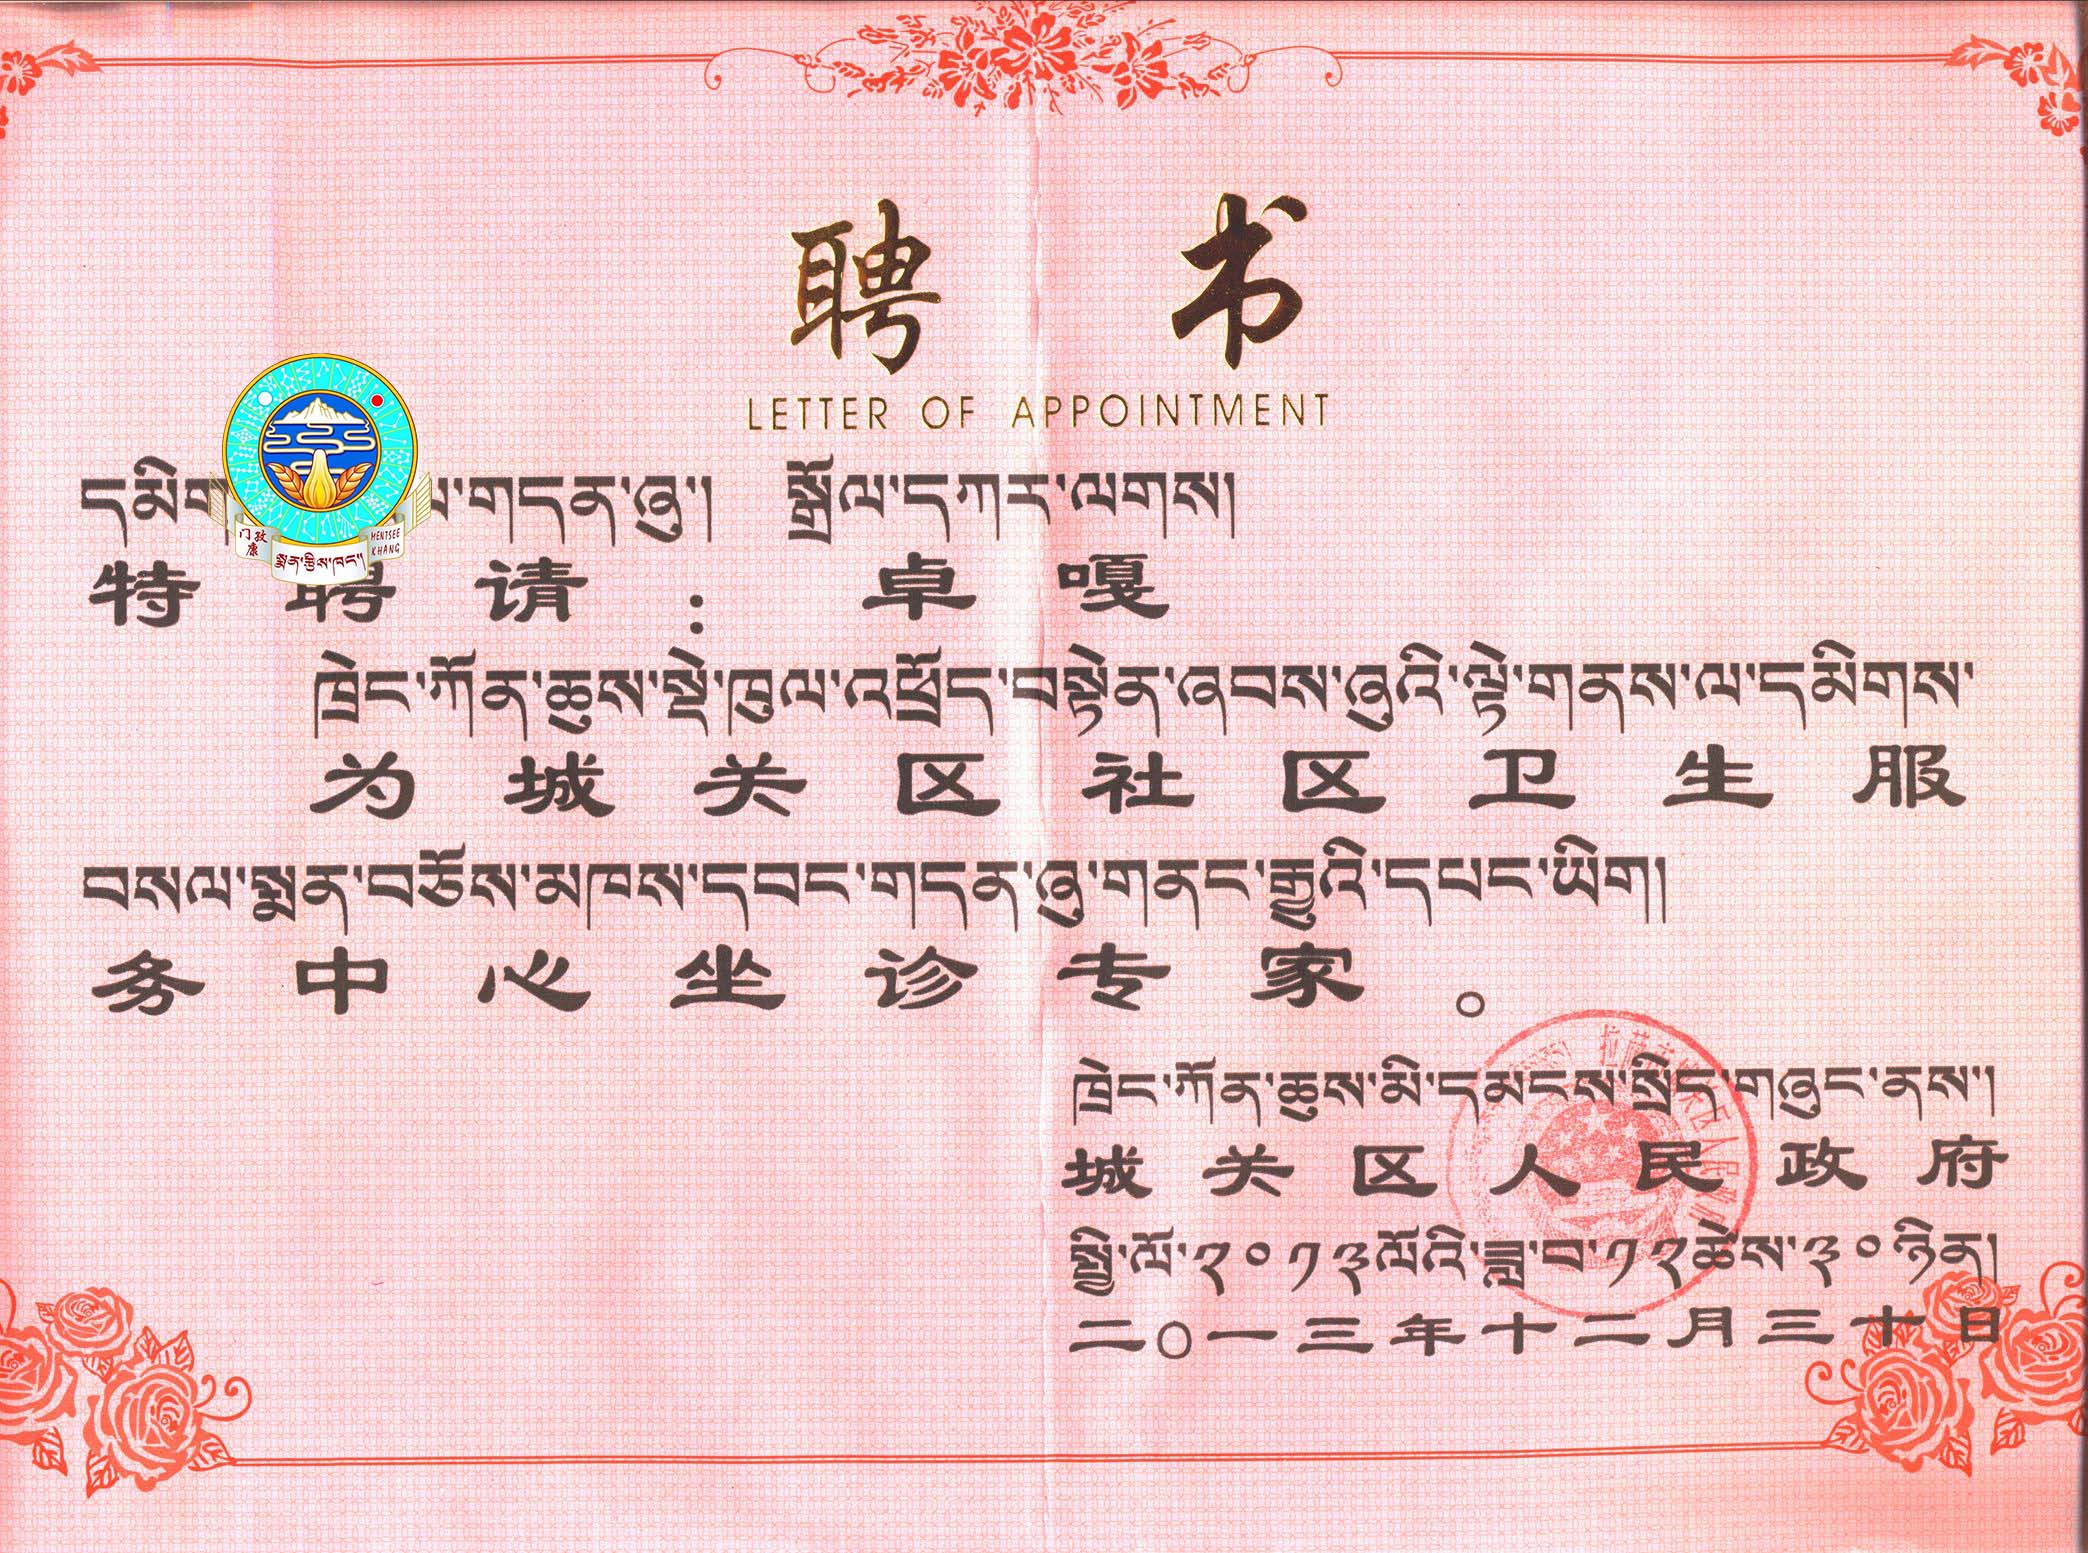 聘书
LETTER OF APPOINTMENT
གདན་ཞུ། སྒྲོལ་དཀར་ལགས།
门孜康
སྨན་རྩིས་ཁང་།
MENTSEE KHANG
特聘请：卓嘎
ཁྲེང་ཀོན་ཆུས་སྡེ་ཁུལ་འཕྲོད་བསྟེན་ཞབས་ཞུའི་ལྟེ་གནས་ལ་དམིགས་
为城关区社区卫生服
བསལ་སྨན་བཅོས་མཁས་དབང་གདན་ཞུ་གནང་རྒྱུའི་དཔང་ཡིག།
务中心坐诊专家。
ཁྲེང་ཀོན་ཆུས་མི་དམངས་སྲིད་གཞུང་ནས།
城关区人民政府
སྤྱི་ལོ་༢༠༡༣ལོའི་ཟླ་བ་༡༢ཚེས་༣༠ཉིན།
二〇一三年十二月三十日